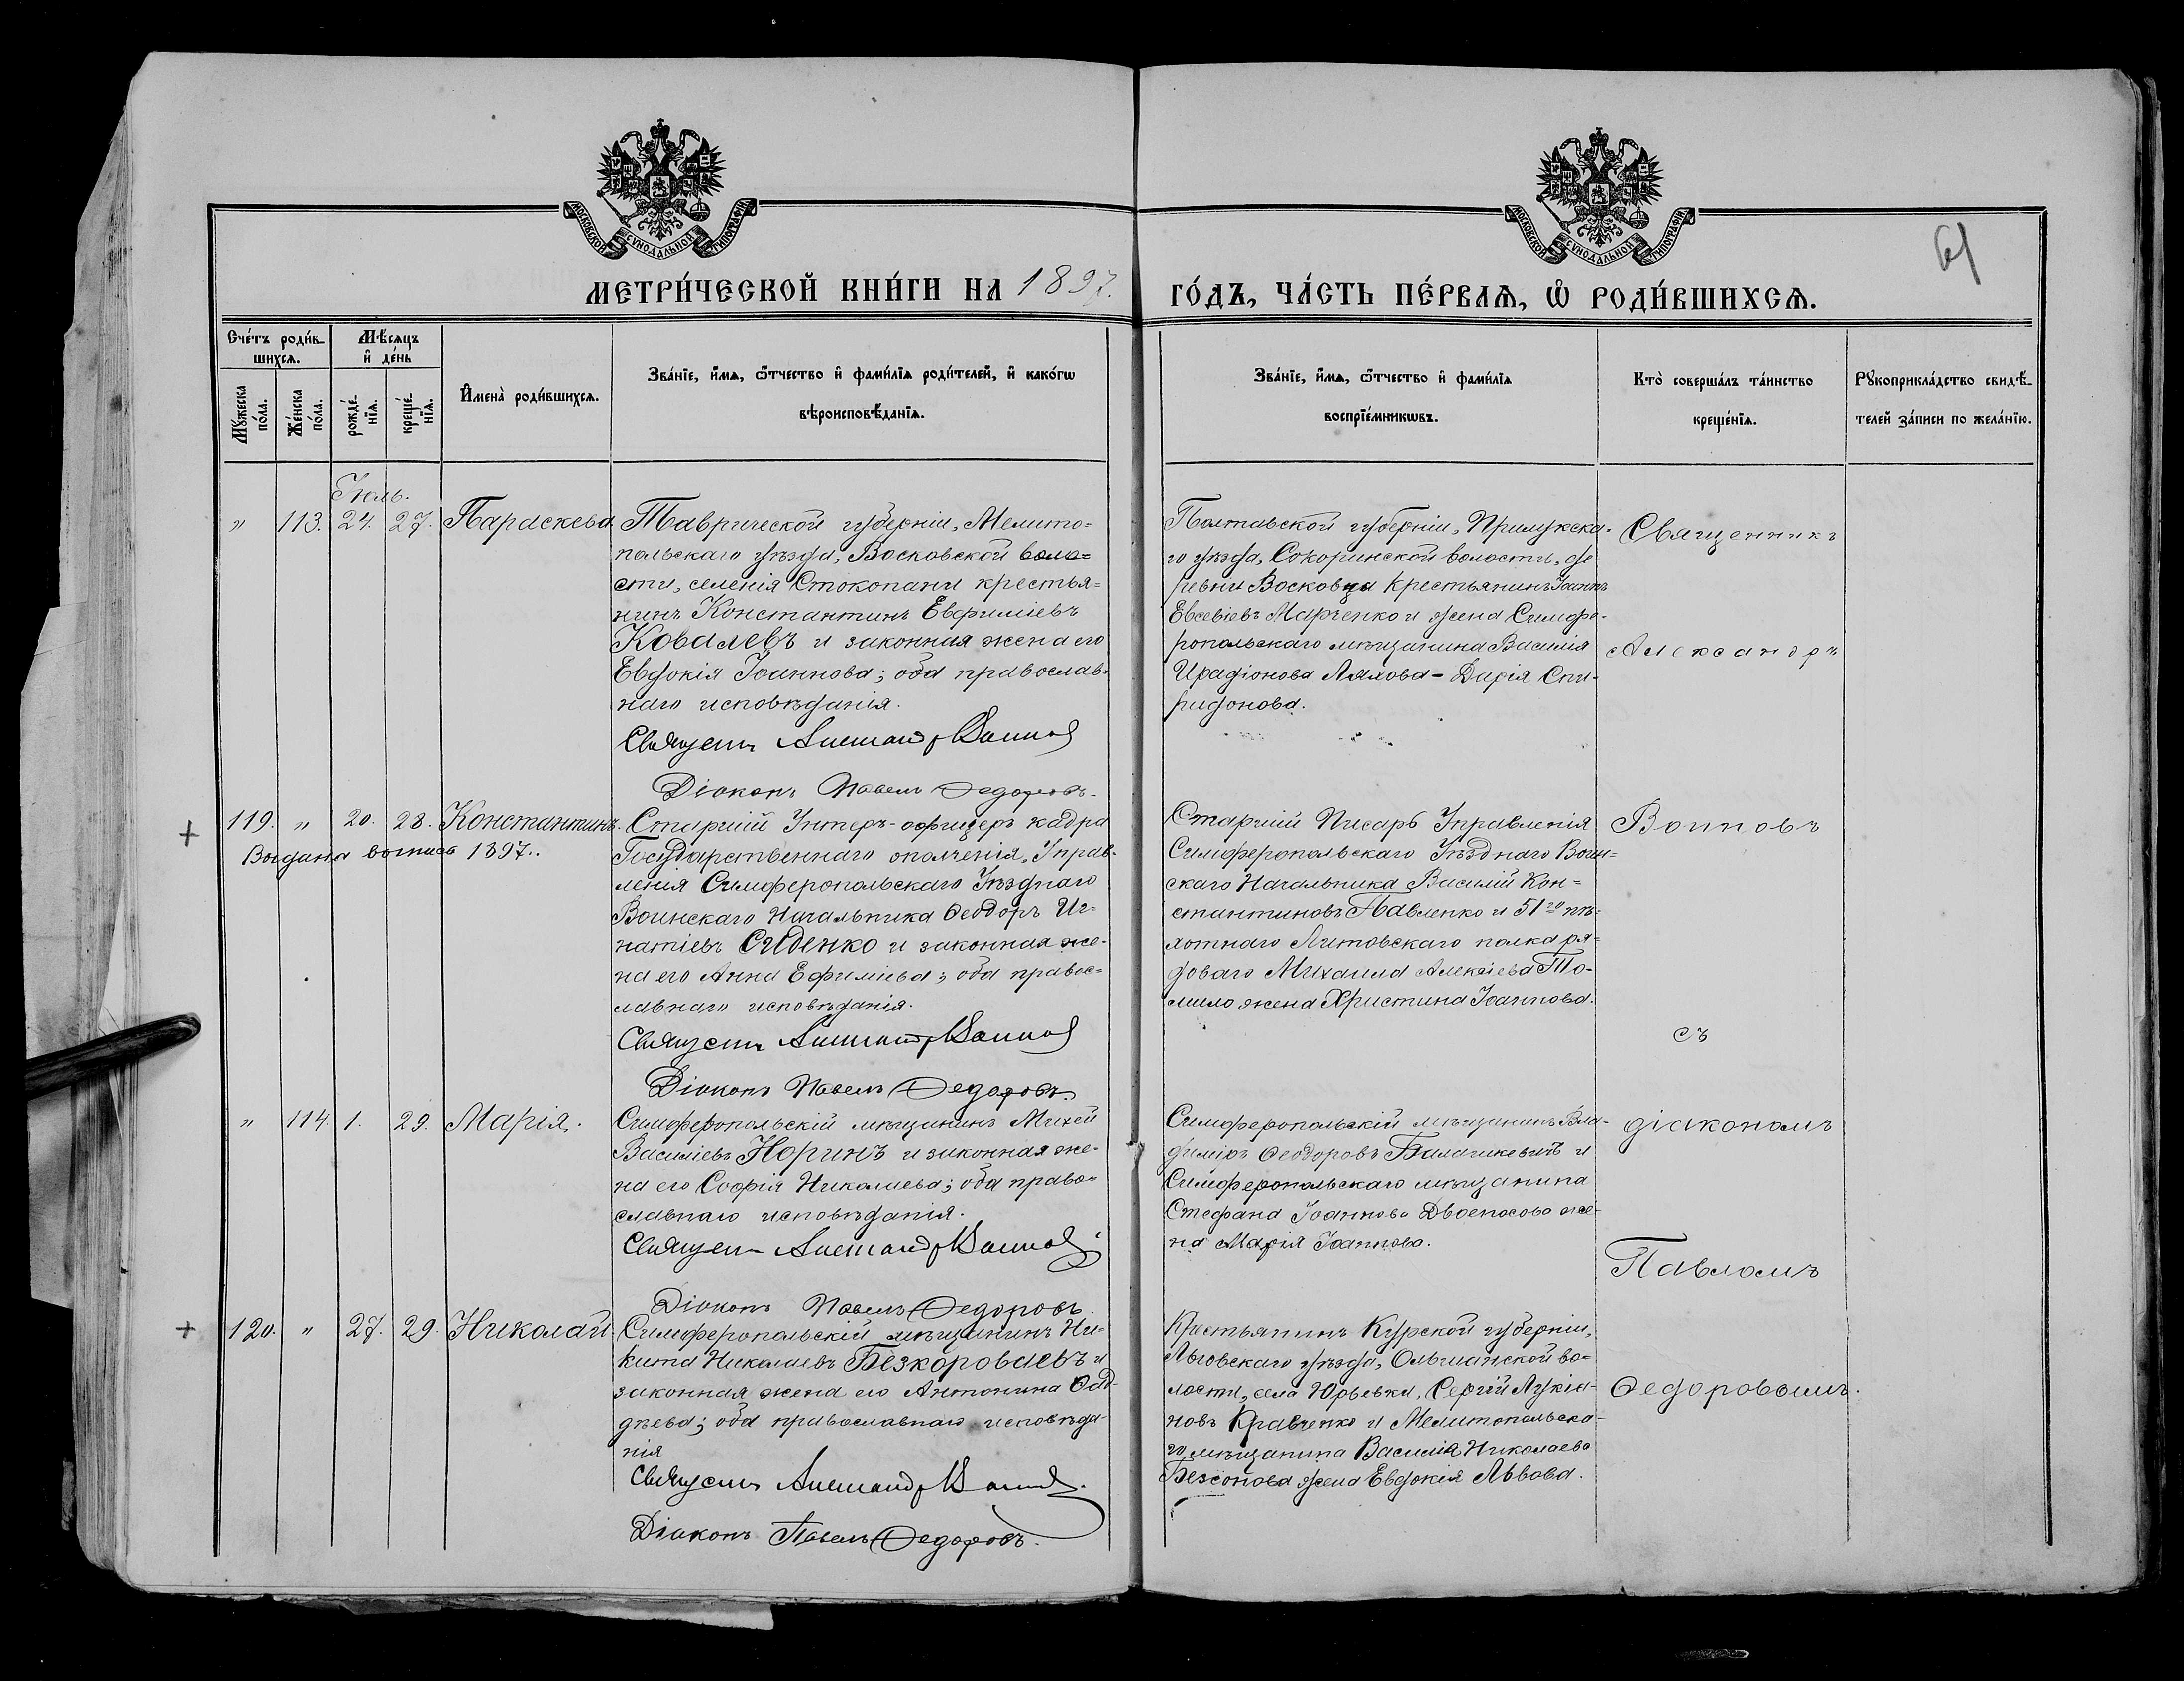 МОСКОВСКОЙ СУНОДАЛЬНОЙ ТИПОГРАФІИ
МОСКОВСКОЙ СУНОДАЛЬНОЙ ТИПОГРАФІИ
61
МЕТРИ́ЧЕСКОЙ КНИ́ГИ НА 1897. ГО́ДЪ, ЧА́СТЬ ПЕ́РВАѦ, Ѡ҆ РОДИ́ВШИХСѦ.
Сче́тъ роди́в-
шихсѧ.
Мѣ́сѧцъ
и҆ де́нь
Мꙋ́жеска
по́ла.
Же́нска
по́ла.
рожде́-
нїѧ.
креще́-
нїѧ.
И҆мена̀ роди́вшихсѧ.
Зва́нїе, и҆́мѧ, ѻ҆́тчество и҆ фами́лїѧ роди́телей, и҆ како́гѡ
вѣроисповѣ́данїѧ.
Зва́нїе, и҆́мѧ, ѻ҆́тчество и҆ фами́лїѧ
воспрїе́мникѡвъ.
Кто̀ соверша́лъ та́инство
креще́нїѧ.
Рꙋкоприкла́дство свидѣ́-
телей за́писи по жела́нїю.
Іюль.
" 113. 24. 27. Параскева
Таврической губерніи, Мелито=
польскаго уѣзда, Восковской воло=
сти, селенія Стокопани крестья=
нинъ Константинъ Евфиміевъ
Ковалевъ и законная жена его
Евдокія Іоаннова; оба православ-
наго исповѣданія.
Священ Александр Воинов
Діаконъ Павелъ Федоровъ.
Полтавской губерніи, Прилукска-
го уѣзда, Сокоринской волости, де-
ревни Восковцы крестьянинъ Іоаннъ
Евсевіевъ Марченко и жена Симфе-
ропольскаго мѣщанина Василія
Иродіонова Ляхова - Дарія Спи-
ридонова.
Священникъ
Александръ
+ 119. " 20. 28. Константинъ.
Выдана выпись 1897..
Старшій Унтеръ-офицеръ кадра
Государственнаго ополченія, Управ-
ленія Симферопольскаго Уѣзднаго
Воинскаго Начальника Феодоръ Иг=
натіевъ Сиденко и законная же-
на его Анна Ефиміева; оба правос=
лавнаго исповѣданія.
Священ Александр Воинов
Діаконъ Павелъ Федоровъ.
Старшій Писарь Управленія
Симферопольскаго Уѣзднаго Воин=
скаго Начальника Василій Кон=
стантиновъ Павленко и 51го пѣ-
хотнаго Литовскаго полка ря=
доваго Михаила Алексіева То-
мило жена Христина Іоаннова.
Воиновъ
съ
" 114. 1. 29. Марія.
Симферопольскій мѣщанинъ Михей
Василіевъ Норинъ и законная же-
на его Софія Николаева; оба право=
славнаго исповѣданія.
Священ Александр Воинов
Діаконъ Павелъ Федоровъ.
Симферопольскій мѣщанинъ Вла-
диміръ Феодоровъ и
Симферопольскаго мѣщанина
Стефана Іоаннова Двоеносова же-
на Марія Іоаннова.
діакономъ
Павломъ
+ 120. " 27. 29. Николай
Симферопольскій мѣщанинъ Ни-
кита Николаевъ Безкороваевъ и
законная жена его Антонина Фад-
дѣева; оба православнаго исповѣда-
нія
Священ Александр Воинов.
Діаконъ Павелъ Федоровъ.
Крестьянинъ Курской губерніи,
Льговскаго уѣзда, Ольшанской во=
лости, села Юрьевки, Сергій Лукіа-
новъ Кравченко и Мелитопольска-
го мѣщанина Василія Николаева
Безсонова жена Евдокія Львова.
Федоровымъ.